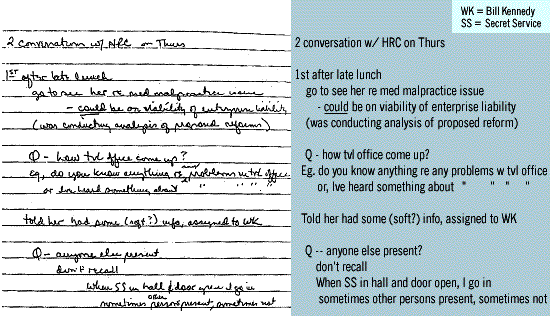 WK = Bill Kennedy
SS = Secret Service
2 conversations w/ HRC on Thurs
1ST after late lunch
go to see her re med malpractice issue
- could be on viability of enterprise liability
(was conducting analysis of proposed reforms)
Q - how tvl office come up?
eg, do you know anything re any problems w tvl office
or Ive heard something about " " " "
told her had some (soft?) info, assigned to WK
Q - anyone else present
don't recall
When SS in hall & door open I go in
sometimes other persons present, sometimes not
2 conversation w/ HRC on Thurs
1st after late lunch
go to see her re med malpractice issue
- could be on viability of enterprise liability
(was conducting analysis of proposed reform)
Q - how tvl office come up?
Eg. do you know anything re any problems w tvl office
or, Ive heard something about " " " "
Told her had some (soft?) info, assigned to WK
Q -- anyone else present?
don't recall
When SS in hall and door open, I go in
sometimes other persons present, sometimes not